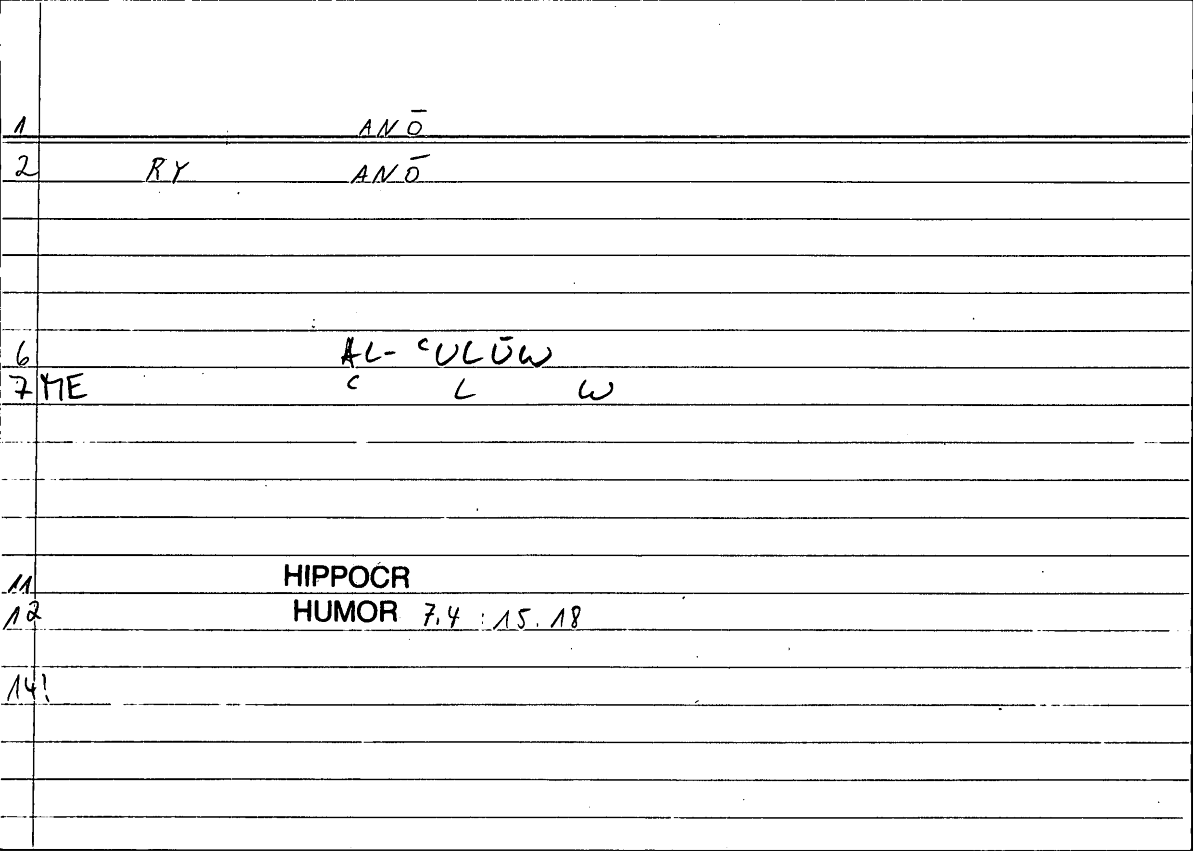 1 ANŌ
2 RY ANŌ
6 AL- ʿULŪW
7 ME ʿ L W
11 HIPPOCR
12 HUMOR 7.4 : 15.18
14!